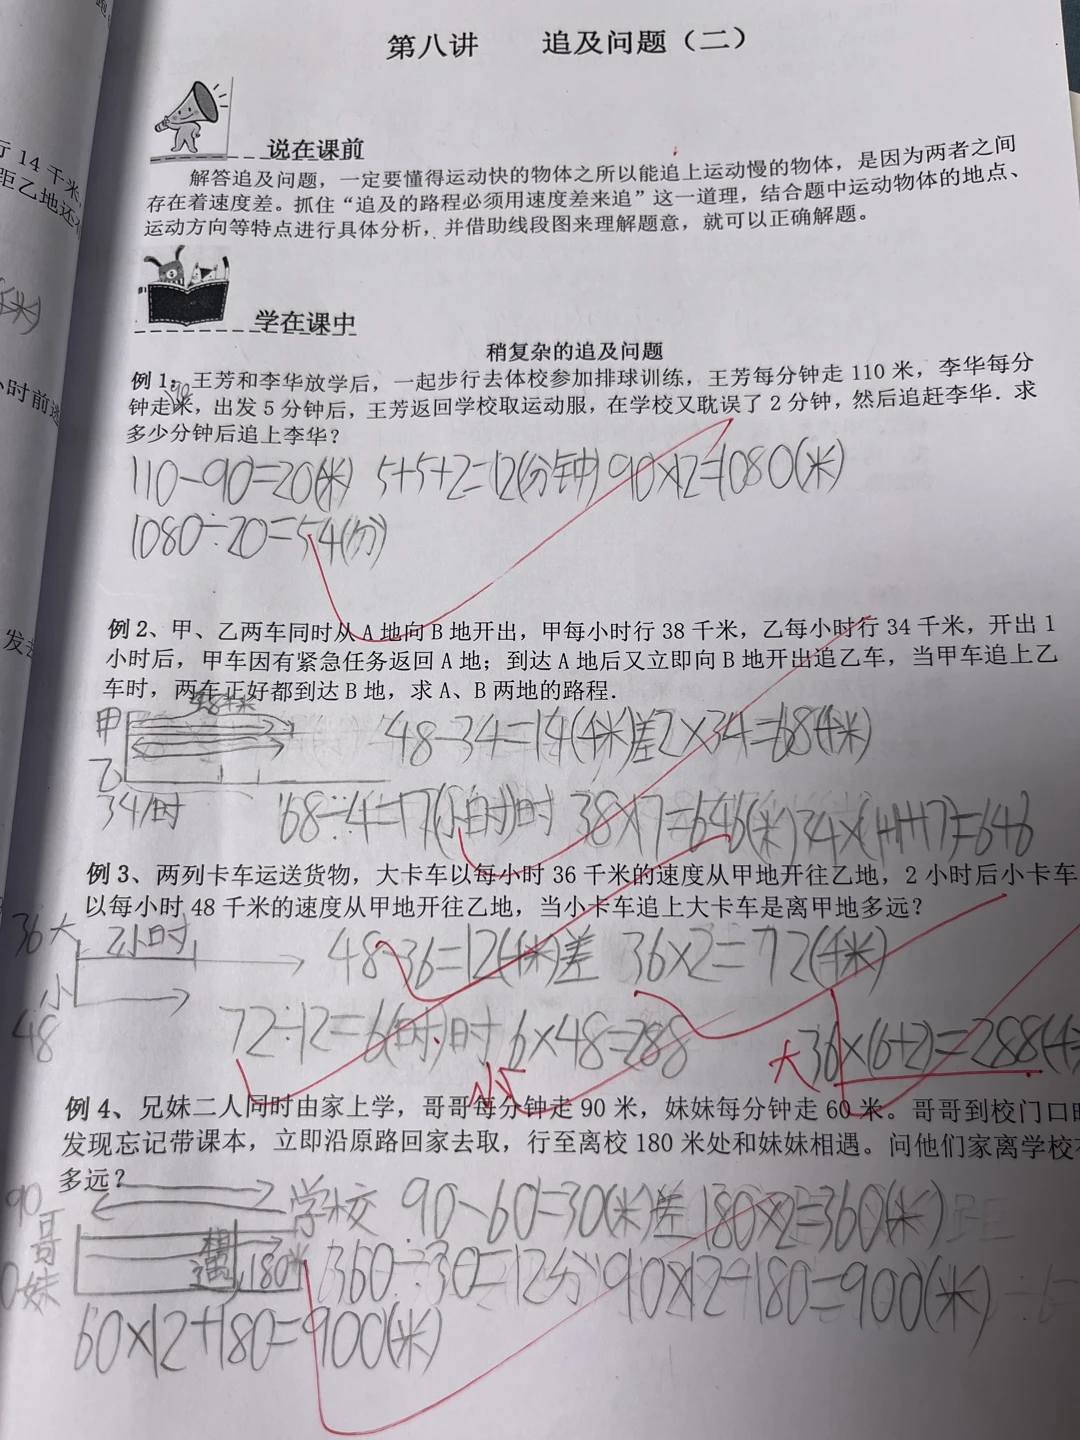 行 14 千米,
距乙地还有
千米)
小时前逃
发击
第八讲 追及问题(二)
说在课前
解答追及问题，一定要懂得运动快的物体之所以能追上运动慢的物体，是因为两者之间
存在着速度差。抓住“追及的路程必须用速度差来追”这一道理，结合题中运动物体的地点、
运动方向等特点进行具体分析，并借助线段图来理解题意，就可以正确解题。
学在课中
稍复杂的追及问题
例 1：王芳和李华放学后，一起步行去体校参加排球训练，王芳每分钟走 110 米，李华每分
钟走90米，出发 5 分钟后，王芳返回学校取运动服，在学校又耽误了 2 分钟，然后追赶李华．求
多少分钟后追上李华？
110-90=20(米) 5+5+2=12(分钟) 90×12=1080(米)
1080÷20=54(分)
例 2、甲、乙两车同时从 A 地向 B 地开出，甲每小时行 38 千米，乙每小时行 34 千米，开出 1
小时后，甲车因有紧急任务返回 A 地；到达 A 地后又立即向 B 地开出追乙车，当甲车追上乙
车时，两车正好都到达 B 地，求 A、B 两地的路程．
甲 48-34=14(千米)差 2×34=68(千米)
乙
34/时 68÷4=17(小时)时 38×17=646(米) 34×(1+1+17)=646
例 3、两列卡车运送货物，大卡车以每小时 36 千米的速度从甲地开往乙地，2 小时后小卡车
以每小时 48 千米的速度从甲地开往乙地，当小卡车追上大卡车是离甲地多远？
36大 2小时 48-36=12(千米)差 36×2=72(千米)
小
48 72÷12=6(时)时 6×48=288 大 36×(6+2)=288(千
例 4、兄妹二人同时由家上学，哥哥每分钟走 90 米，妹妹每分钟走 60 米。哥哥到校门口时
发现忘记带课本，立即沿原路回家去取，行至离校 180 米处和妹妹相遇。问他们家离学校有
多远？
90 学校 90-60=30(米)差 180×2=360(米)
哥 相遇 180米 360÷30=12(分) 90×12-180=900(米)
妹
60×12+180=900(米)